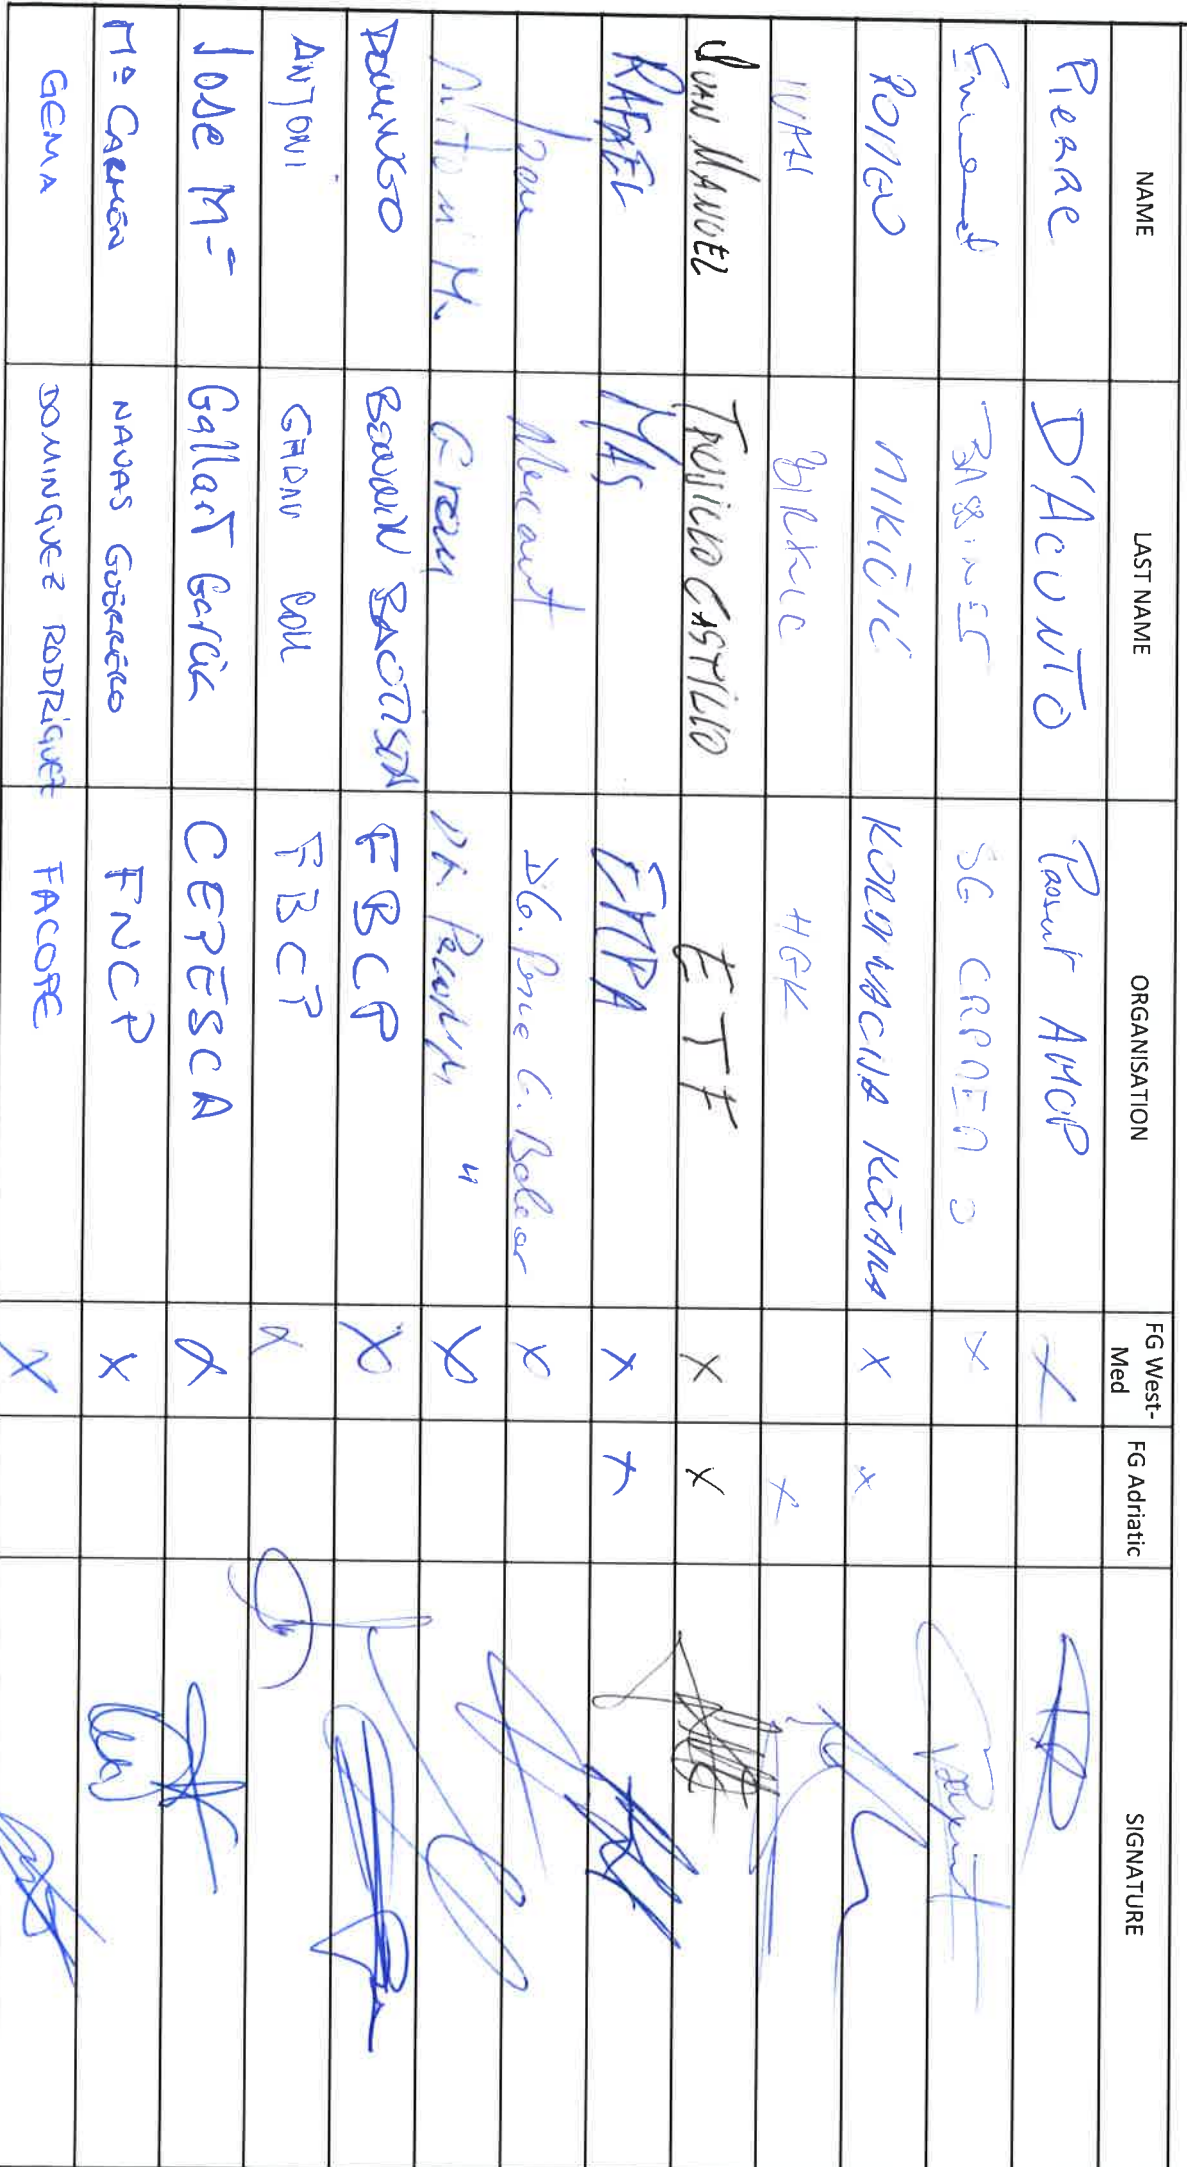 NAME LAST NAME ORGANISATION FG West-Med FG Adriatic SIGNATURE
Pierre D'ACUNTO AMOP X
X
ROMEO MIKIČIĆ X X
IVAN BIRKIC HGK X
JUAN MANUEL TRUJILLO CASTILLO ETF X X
RAFAEL MAS EMPA X X
Joan Mercant D.G. Pesca G. Balear X
Antoni M. Grau X
DOMINGO BONNIN BAUTISTA FBCP X
ANTONI GRAU COLL FBCP X
Jose Mª Gallart García CEPESCA X
Mª CARMEN NAVAS GUERRERO FNCP X
GEMA DOMINGUEZ RODRIGUEZ FACOPE X